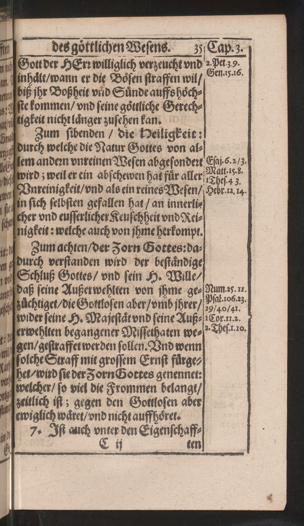 des göttlichen Wesens. 35 Cap. 3.
Gott der HErr williglich verzeucht vnd
inhält/wann er die Bösen straffen wil/
biß ihr Boßheit vnd Sünde auffs höch-
ste kommen/vnd seine göttliche Gerech-
tigkeit nicht länger zusehen kan.
2. Pet. 3 9.
Gen. 15. 16.
Zum sibenden / die Heiligkeit:
durch welche die Natur Gottes von al-
lem andern vnreinen Wesen abgesondert
wird; weil er ein abschewen hat für aller
Vnreinigkeit/vnd als ein reines Wesen/
in sich selbsten gefallen hat/an innerli-
cher vnd eusserlicher Keuschheit vnd Rei-
nigkeit: welche auch von jhme herkompt.
Esaj. 6. 2/3.
Matt. 15. 8.
1. Thes. 4 3.
Hebr. 12. 14.
Zum achten/der Zorn Gottes: da-
durch verstanden wird der beständige
Schluß Gottes/vnd sein H. Wille/
daß seine Außerwehlten von jhme ge-
züchtiget/die Gottlosen aber/vmb jhrer/
wider seine H. Majestät vnd seine Auß-
erwehlten begangener Missethaten we-
gen/gestraffet werden sollen. Vnd wenn
solche Straff mit grossem Ernst fürge-
het/wird sie der Zorn Gottes genennet:
welcher/ so viel die Frommen belangt/
zeitlich ist; gegen den Gottlosen aber
ewiglich wäret/vnd nicht auffhöret.
Num. 25. 11.
Psal. 106. 23.
29/40/41.
1. Cor. 11. 2.
2. Thes. 1. 10.
7. Ist auch vnter den Eigenschaff-
C ij ten